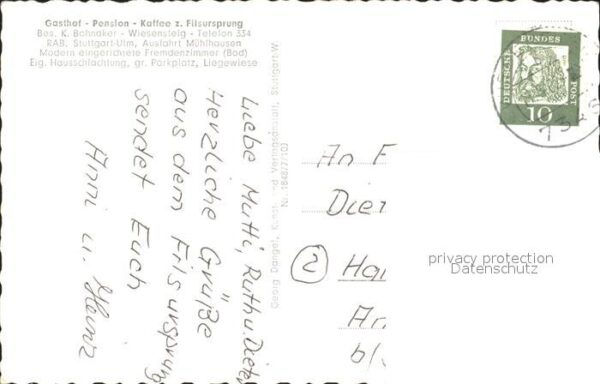 Gasthof - Pension - Kaffee z. Filsursprung
Bes. K. Bohnaker - Wiesensteig - Telefon 334
BAB. Stuttgart-Ulm, Ausfahrt Mühlhausen
Modern eingerichtete Fremdenzimmer (Bad)
Eig. Hausschlachtung, gr. Parkplatz, Liegewiese
Liebe Mutti, Ruth u. Dieter
Herzliche Grüße
aus dem Filsursprung
sendet Euch
Anni u. Heinz
Georg Dangel, Kunst- und Verlagsanstalt, Stuttgart-W
DEUTSCHE BUNDESPOST
10
An F
Diet
2 Ha
An
b/
privacy protection
Datenschutz